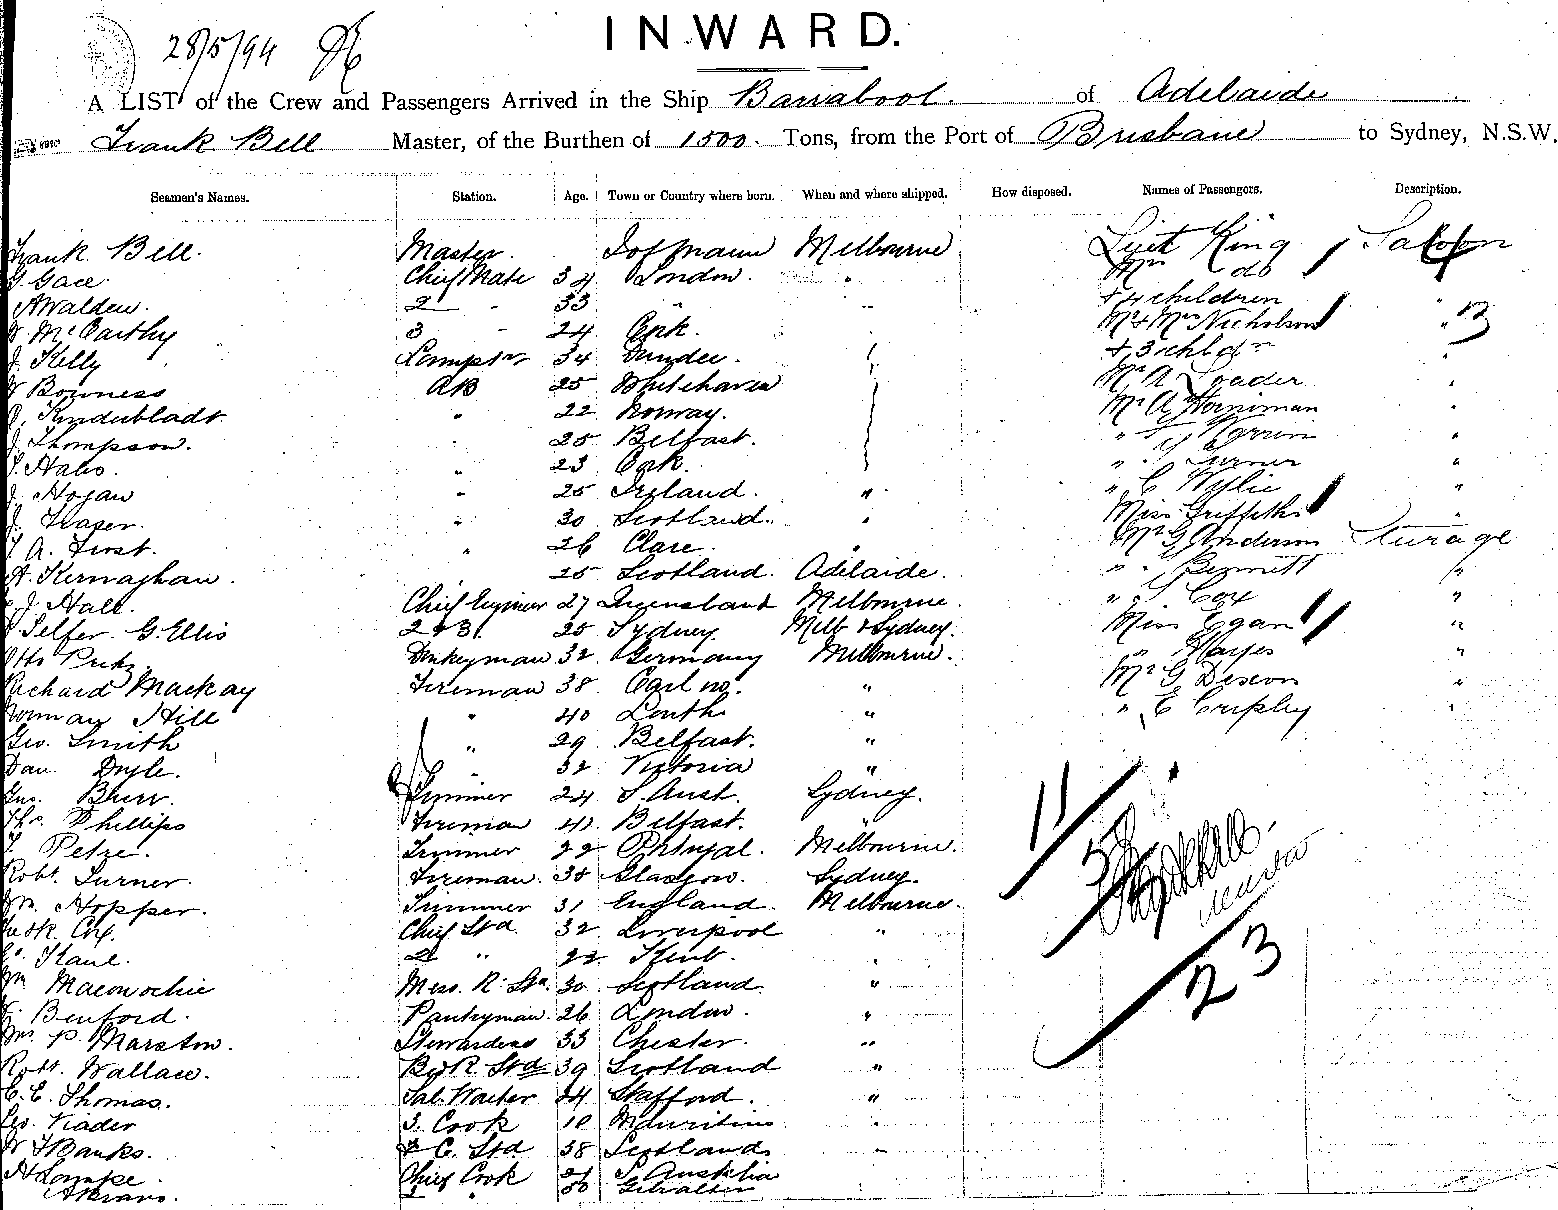 INWARD.
28/5/94
A LIST of the Crew and Passengers Arrived in the Ship Barrabool. of Adelaide
Frank Bell Master, of the Burthen of 1500. Tons, from the Port of Brisbane to Sydney, N.S.W.
Seamen's Names. Station. Age. Town or Country where born. When and where shipped. How disposed. Names of Passengers. Description.
Frank Bell. Master. Melbourne Lieut King Saloon
Gace. Chief Mate 34 London. " Mrs do
A Walden. 2 " 33 " " + 4 children "
McCarthy 3 " 24 Cork. Mr & Mrs Nicholson " 12
J. Kelly Lamptr 34 Dundee. + 3 childn "
W Bowness AB 25 Whitehaven Mr A Loader "
" 22 Norway. Mr A Horniman "
J. Thompson. " 25 Belfast. " "
" 23 Cork. " Turner "
J. Hogan " 25 Ireland. " " C Wylie "
J. Fraser. " 30 Scotland. " Miss Griffiths "
A. Frost. " 26 Clare. " Mr G Anderson Sturage
A. Kernaghan. 25 Scotland. Adelaide. " Bennett "
J Hall. Chief Engineer 27 Queensland Melbourne. " Cox "
Telfer G. Ellis 2 & 3 25 Sydney. Melb & Sydney. Miss Egan "
Otto Donkeyman 32 Germany Melbourne. " Hayes "
Richard Mackay Fireman 38 " Mr G Dixon "
Norman Hill " 40 Louth " " E "
Geo. Smith " 29 Belfast. "
Dan Doyle. " 32 Victoria "
Jno. Blurr. Trimmer 24 S. Aust. Sydney.
Thos Phillips Fireman 42 Belfast. "
Petre. Trimmer 22 Portugal. Melbourne.
Robt. Turner. Fireman. 35 Glasgow. Sydney.
Wm. Hopper. Trimmer 31 England. Melbourne.
Fredk. Cox. Chief Std 32 Liverpool "
Kane. 2 " 22 Kent. "
Wm Maconochie Mess. R. Std. 30 Scotland "
Benford. Pantryman. 26 London. "
Mrs. P. Marston. Stewardess 33 Chester. "
Robt. Wallace. B & R Std 39 Scotland "
C. E. Thomas. Sal. Waiter 24 Stafford. "
Geo. Viader 3. Cook 10 Mauritius "
Banks. F C. Std 38 Scotland "
Chief Cook 21 S Australia
" 50 Gibraltar
11
5
23